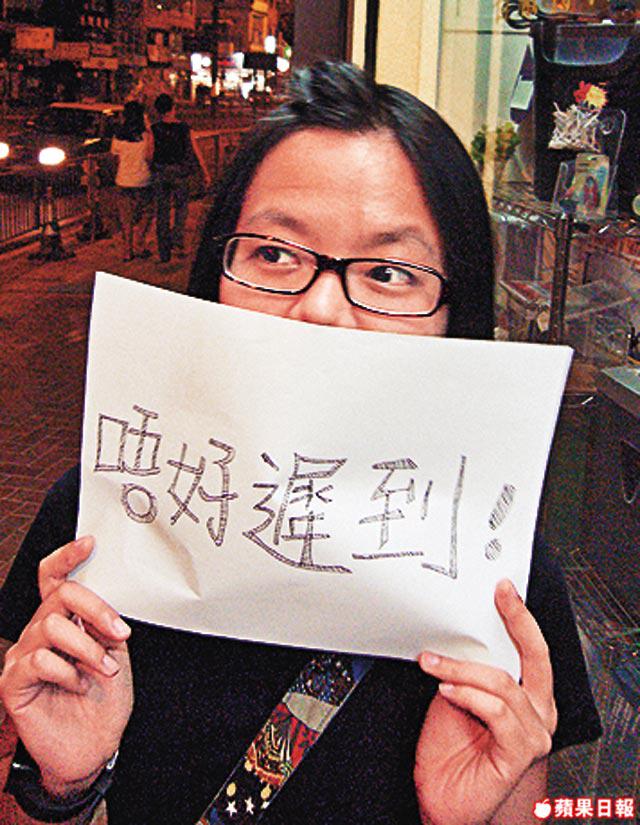 唔好遲到!
蘋果日報